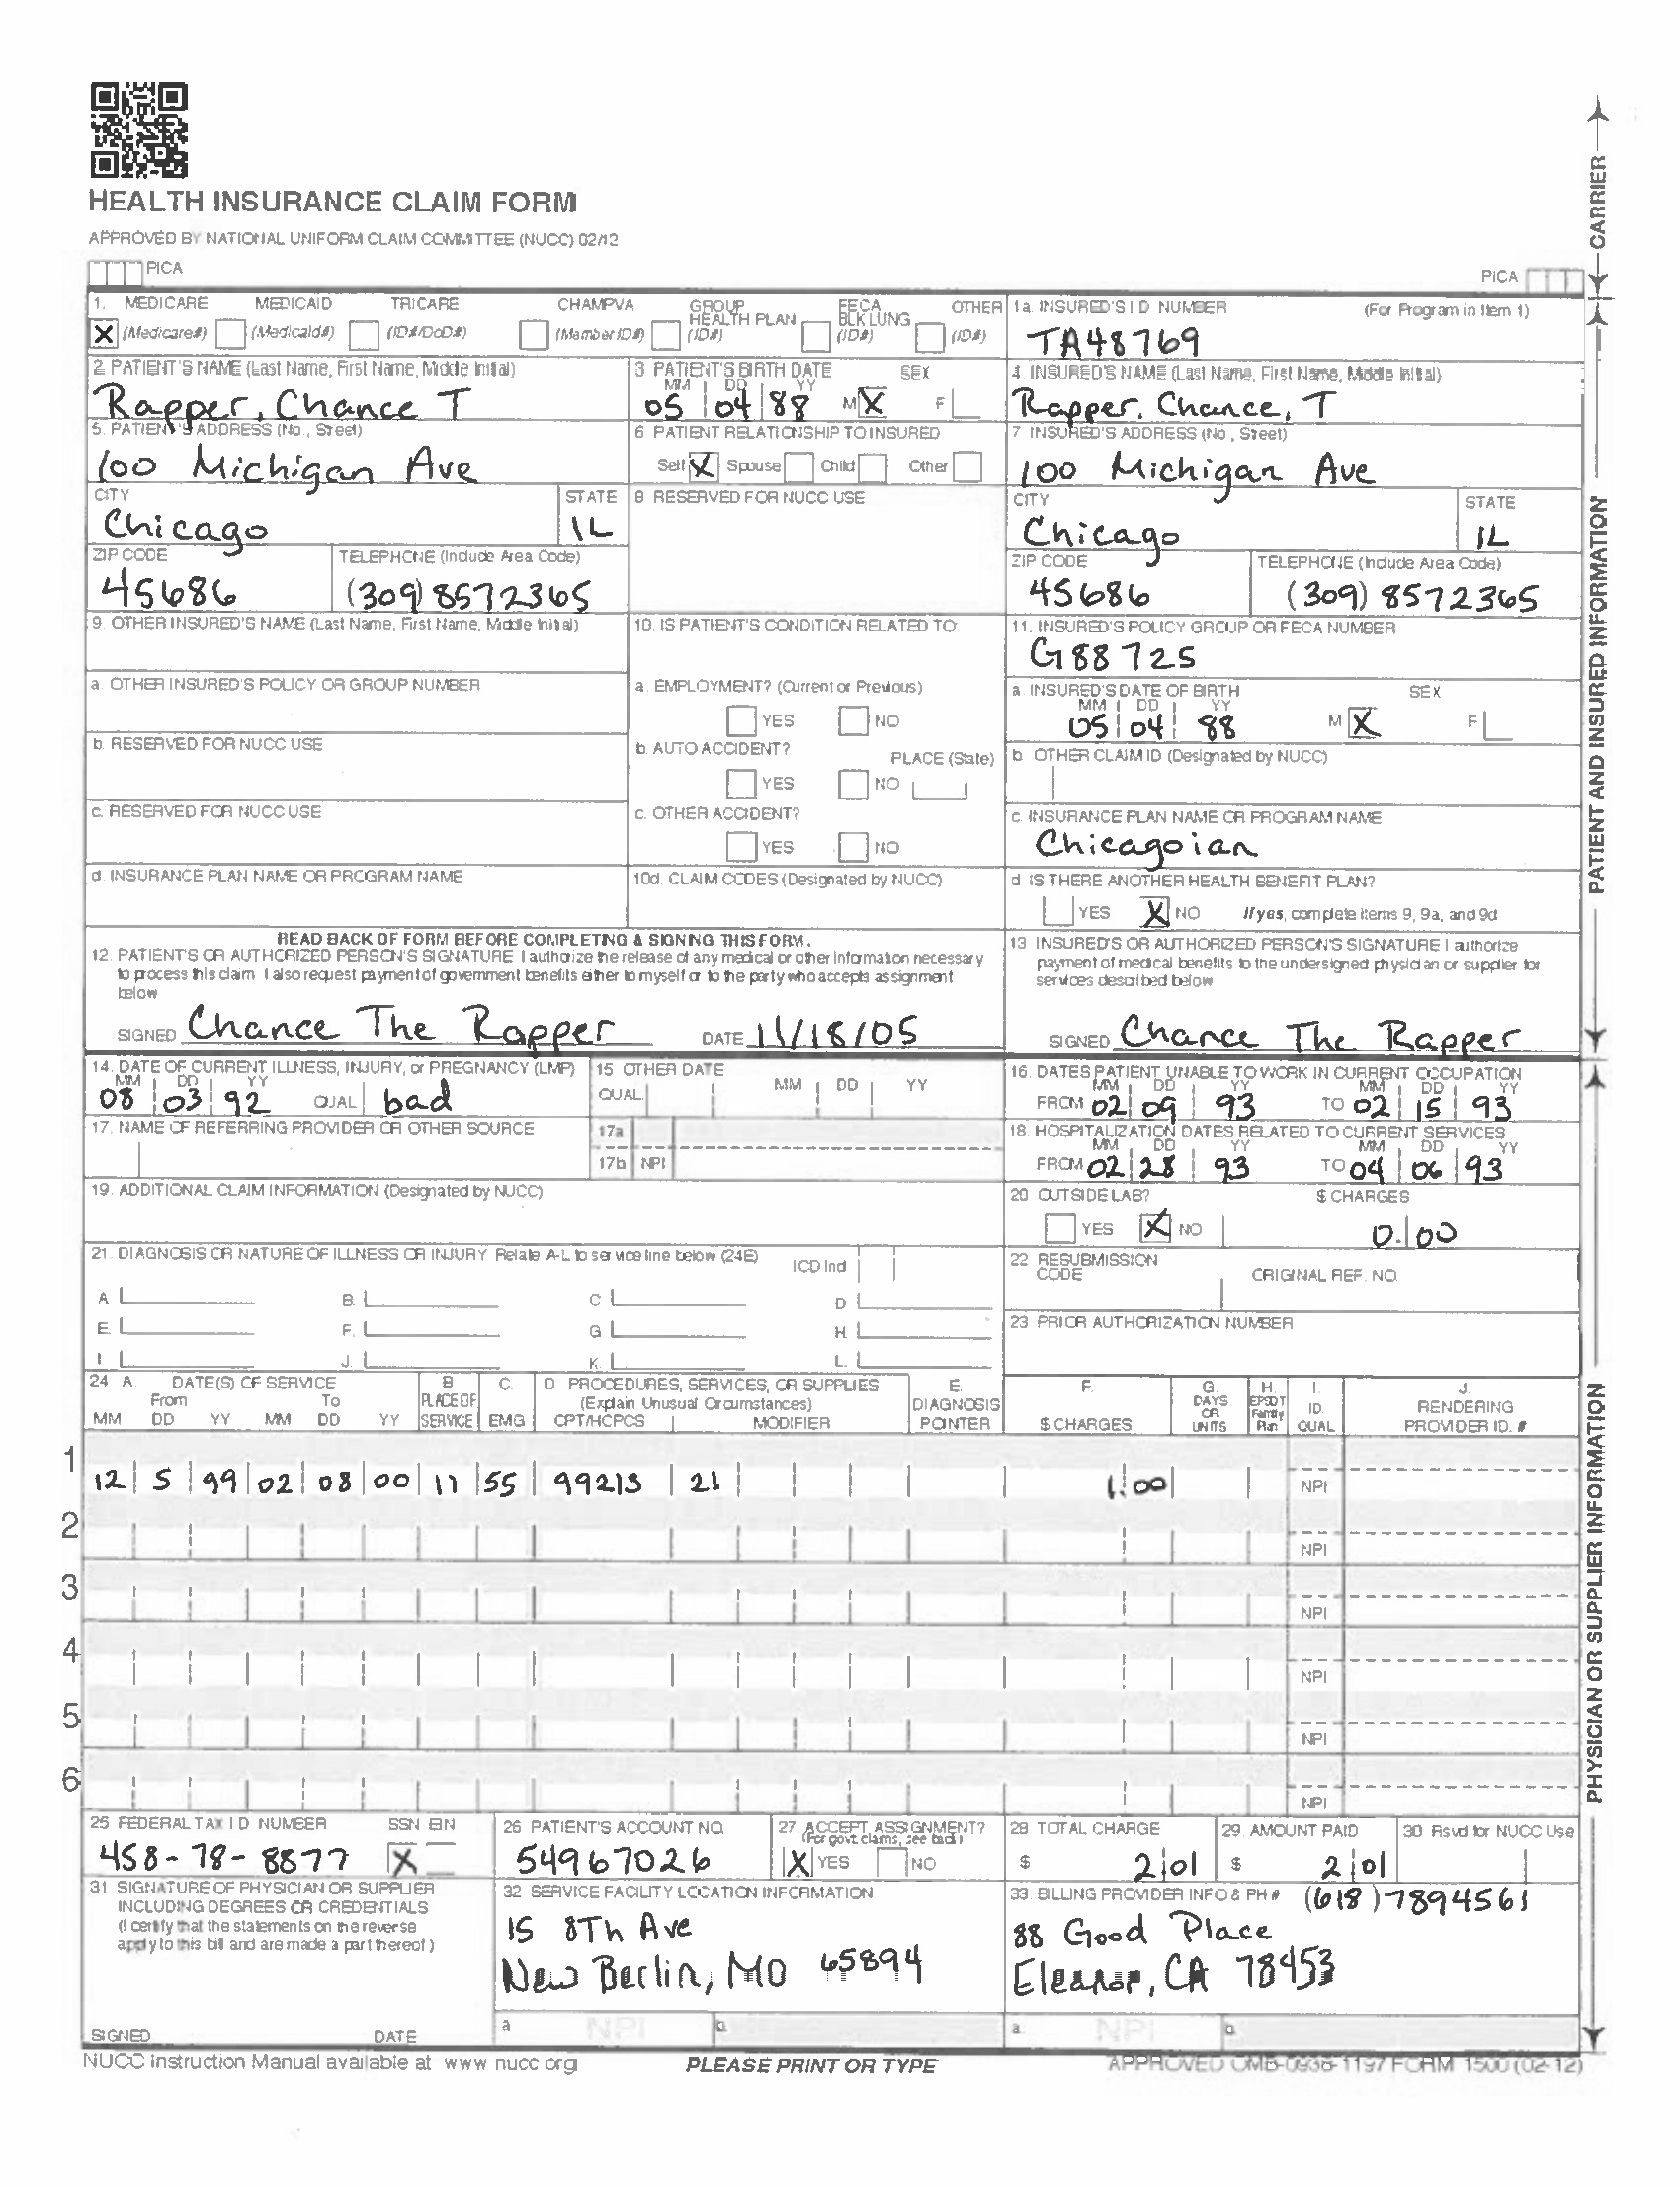 HEALTH INSURANCE CLAIM FORM
APPROVED BY NATIONAL UNIFORM CLAIM COMMITTEE (NUCC) 02/12
PICA
PICA
CARRIER
1. MEDICARE MEDICAID TRICARE CHAMPVA GROUP HEALTH PLAN FECA BLK LUNG OTHER
X (Medicare#) (Medicaid#) (ID#/DoD#) (Member ID#) (ID#) (ID#) (ID#)
1a. INSURED'S I.D. NUMBER (For Program in Item 1)
TA48769
2. PATIENT'S NAME (Last Name, First Name, Middle Initial)
Rapper, Chance T
3 PATIENT'S BIRTH DATE SEX
MM DD YY
05 04 88 M X F
4. INSURED'S NAME (Last Name, First Name, Middle Initial)
Rapper, Chance, T
5. PATIENT'S ADDRESS (No., Street)
100 Michigan Ave
6 PATIENT RELATIONSHIP TO INSURED
Self X Spouse Child Other
7 INSURED'S ADDRESS (No., Street)
100 Michigan Ave
CITY STATE
Chicago IL
8 RESERVED FOR NUCC USE
CITY STATE
Chicago IL
ZIP CODE TELEPHONE (Include Area Code)
45686 (309) 8572365
ZIP CODE TELEPHONE (Include Area Code)
45686 (309) 8572365
9. OTHER INSURED'S NAME (Last Name, First Name, Middle Initial)
10. IS PATIENT'S CONDITION RELATED TO:
11. INSURED'S POLICY GROUP OR FECA NUMBER
G88725
a. OTHER INSURED'S POLICY OR GROUP NUMBER
a. EMPLOYMENT? (Current or Previous)
YES NO
a. INSURED'S DATE OF BIRTH SEX
MM DD YY
05 04 88 M X F
b. RESERVED FOR NUCC USE
b. AUTO ACCIDENT? PLACE (State)
YES NO
b. OTHER CLAIM ID (Designated by NUCC)
c. RESERVED FOR NUCC USE
c. OTHER ACCIDENT?
YES NO
c. INSURANCE PLAN NAME OR PROGRAM NAME
Chicagoian
d. INSURANCE PLAN NAME OR PROGRAM NAME
10d. CLAIM CODES (Designated by NUCC)
d. IS THERE ANOTHER HEALTH BENEFIT PLAN?
YES X NO If yes, complete items 9, 9a, and 9d
PATIENT AND INSURED INFORMATION
READ BACK OF FORM BEFORE COMPLETING & SIGNING THIS FORM.
12. PATIENT'S OR AUTHORIZED PERSON'S SIGNATURE I authorize the release of any medical or other information necessary
to process this claim. I also request payment of government benefits either to myself or to the party who accepts assignment
below
SIGNED Chance The Rapper DATE 11/18/05
13 INSURED'S OR AUTHORIZED PERSON'S SIGNATURE I authorize
payment of medical benefits to the undersigned physician or supplier for
services described below
SIGNED Chance The Rapper
14. DATE OF CURRENT ILLNESS, INJURY, or PREGNANCY (LMP)
MM DD YY
08 03 92 QUAL bad
15 OTHER DATE
QUAL MM DD YY
16. DATES PATIENT UNABLE TO WORK IN CURRENT OCCUPATION
MM DD YY MM DD YY
FROM 02 09 93 TO 02 15 93
17. NAME OF REFERRING PROVIDER OR OTHER SOURCE
17a
17b NPI
18. HOSPITALIZATION DATES RELATED TO CURRENT SERVICES
MM DD YY MM DD YY
FROM 02 28 93 TO 04 06 93
19. ADDITIONAL CLAIM INFORMATION (Designated by NUCC)
20 OUTSIDE LAB? $ CHARGES
YES X NO 0.00
21. DIAGNOSIS OR NATURE OF ILLNESS OR INJURY Relate A-L to service line below (24E) ICD Ind
A B. C D
E. F. G H.
I. J. K. L.
22 RESUBMISSION
CODE ORIGINAL REF. NO.
23. PRIOR AUTHORIZATION NUMBER
24 A. DATE(S) OF SERVICE B. C. D PROCEDURES, SERVICES, OR SUPPLIES E. F. G. H. I. J.
From To PLACE OF (Explain Unusual Circumstances) DIAGNOSIS DAYS OR EPSDT Family ID. RENDERING
MM DD YY MM DD YY SERVICE EMG CPT/HCPCS MODIFIER POINTER $ CHARGES UNITS Plan QUAL PROVIDER ID. #
1
12 5 99 02 08 00 11 55 99213 21 1.00 NPI
2
NPI
3
NPI
4
NPI
5
NPI
6
NPI
PHYSICIAN OR SUPPLIER INFORMATION
25 FEDERAL TAX I.D. NUMBER SSN EIN
458-78-8877 X
26 PATIENT'S ACCOUNT NO.
54967026
27. ACCEPT ASSIGNMENT?
(For govt. claims, see back)
X YES NO
28 TOTAL CHARGE
$ 2 01
29. AMOUNT PAID
$ 2 01
30 Rsvd for NUCC Use
31 SIGNATURE OF PHYSICIAN OR SUPPLIER
INCLUDING DEGREES OR CREDENTIALS
(I certify that the statements on the reverse
apply to this bill and are made a part thereof.)
SIGNED DATE
32 SERVICE FACILITY LOCATION INFORMATION
15 8Th Ave
New Berlin, MO 65894
a NPI b.
33. BILLING PROVIDER INFO & PH # (618)7894561
88 Good Place
Eleanor, CA 78453
a. NPI b.
NUCC Instruction Manual available at www nucc org
PLEASE PRINT OR TYPE
APPROVED OMB-0938-1197 FORM 1500 (02-12)